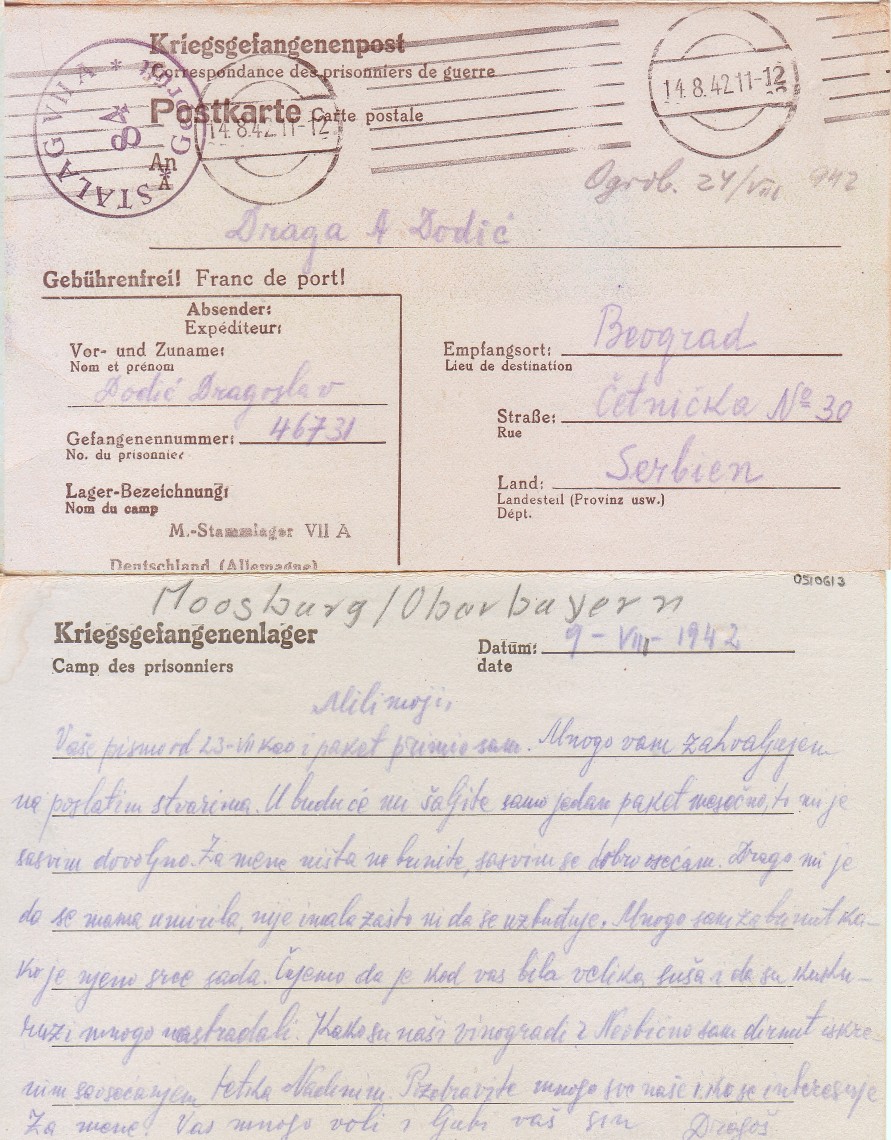 Kriegsgefangenenpost
Correspondance des prisonniers de guerre
Postkarte Carte postale
STALAG VII A * Geprüft *
84
14.8.42 11-12
14.8.42 11-12
An
À
Ogrob. 24/VIII 942
Draga A Dodić
Gebührenfrei! Franc de port!
Absender:
Expéditeur:
Vor- und Zuname:
Nom et prénom
Dodić Dragoslav
Gefangenennummer: 46731
No. du prisonnier
Lager-Bezeichnung:
Nom du camp
M.-Stammlager VII A
Deutschland (Allemagne)
Empfangsort: Beograd
Lieu de destination
Straße: Četnička No 30
Rue
Land: Serbien
Landesteil (Provinz usw.)
Dépt.
0510613
Moosburg/Oberbayern
Kriegsgefangenenlager
Camp des prisonniers
Datum: 9-VIII-1942
date
Mili moji,
Vaše pismo od 23-VII kao i paket primio sam. Mnogo vam zahvaljujem
na poslatim stvarima. U buduće mi šaljite samo jedan paket mesečno, to mi je
sasvim dovoljno. Za mene ništa ne brinite, sasvim se dobro osećam. Drago mi je
da se mama umirila, nije imala zašto ni da se uzbuđuje. Mnogo sam zabrinut ka-
ko je njeno srce sada. Čujemo da je kod vas bila velika suša i da su kuku-
ruzi mnogo nastradali. Kako su naši vinogradi? Neobično sam dirnut iskre-
nim saosećanjem tetka Nadinim. Pozdravite mnogo sve naše i ko se interesuje
za mene. Vas mnogo voli i ljubi vaš sin Dragoš